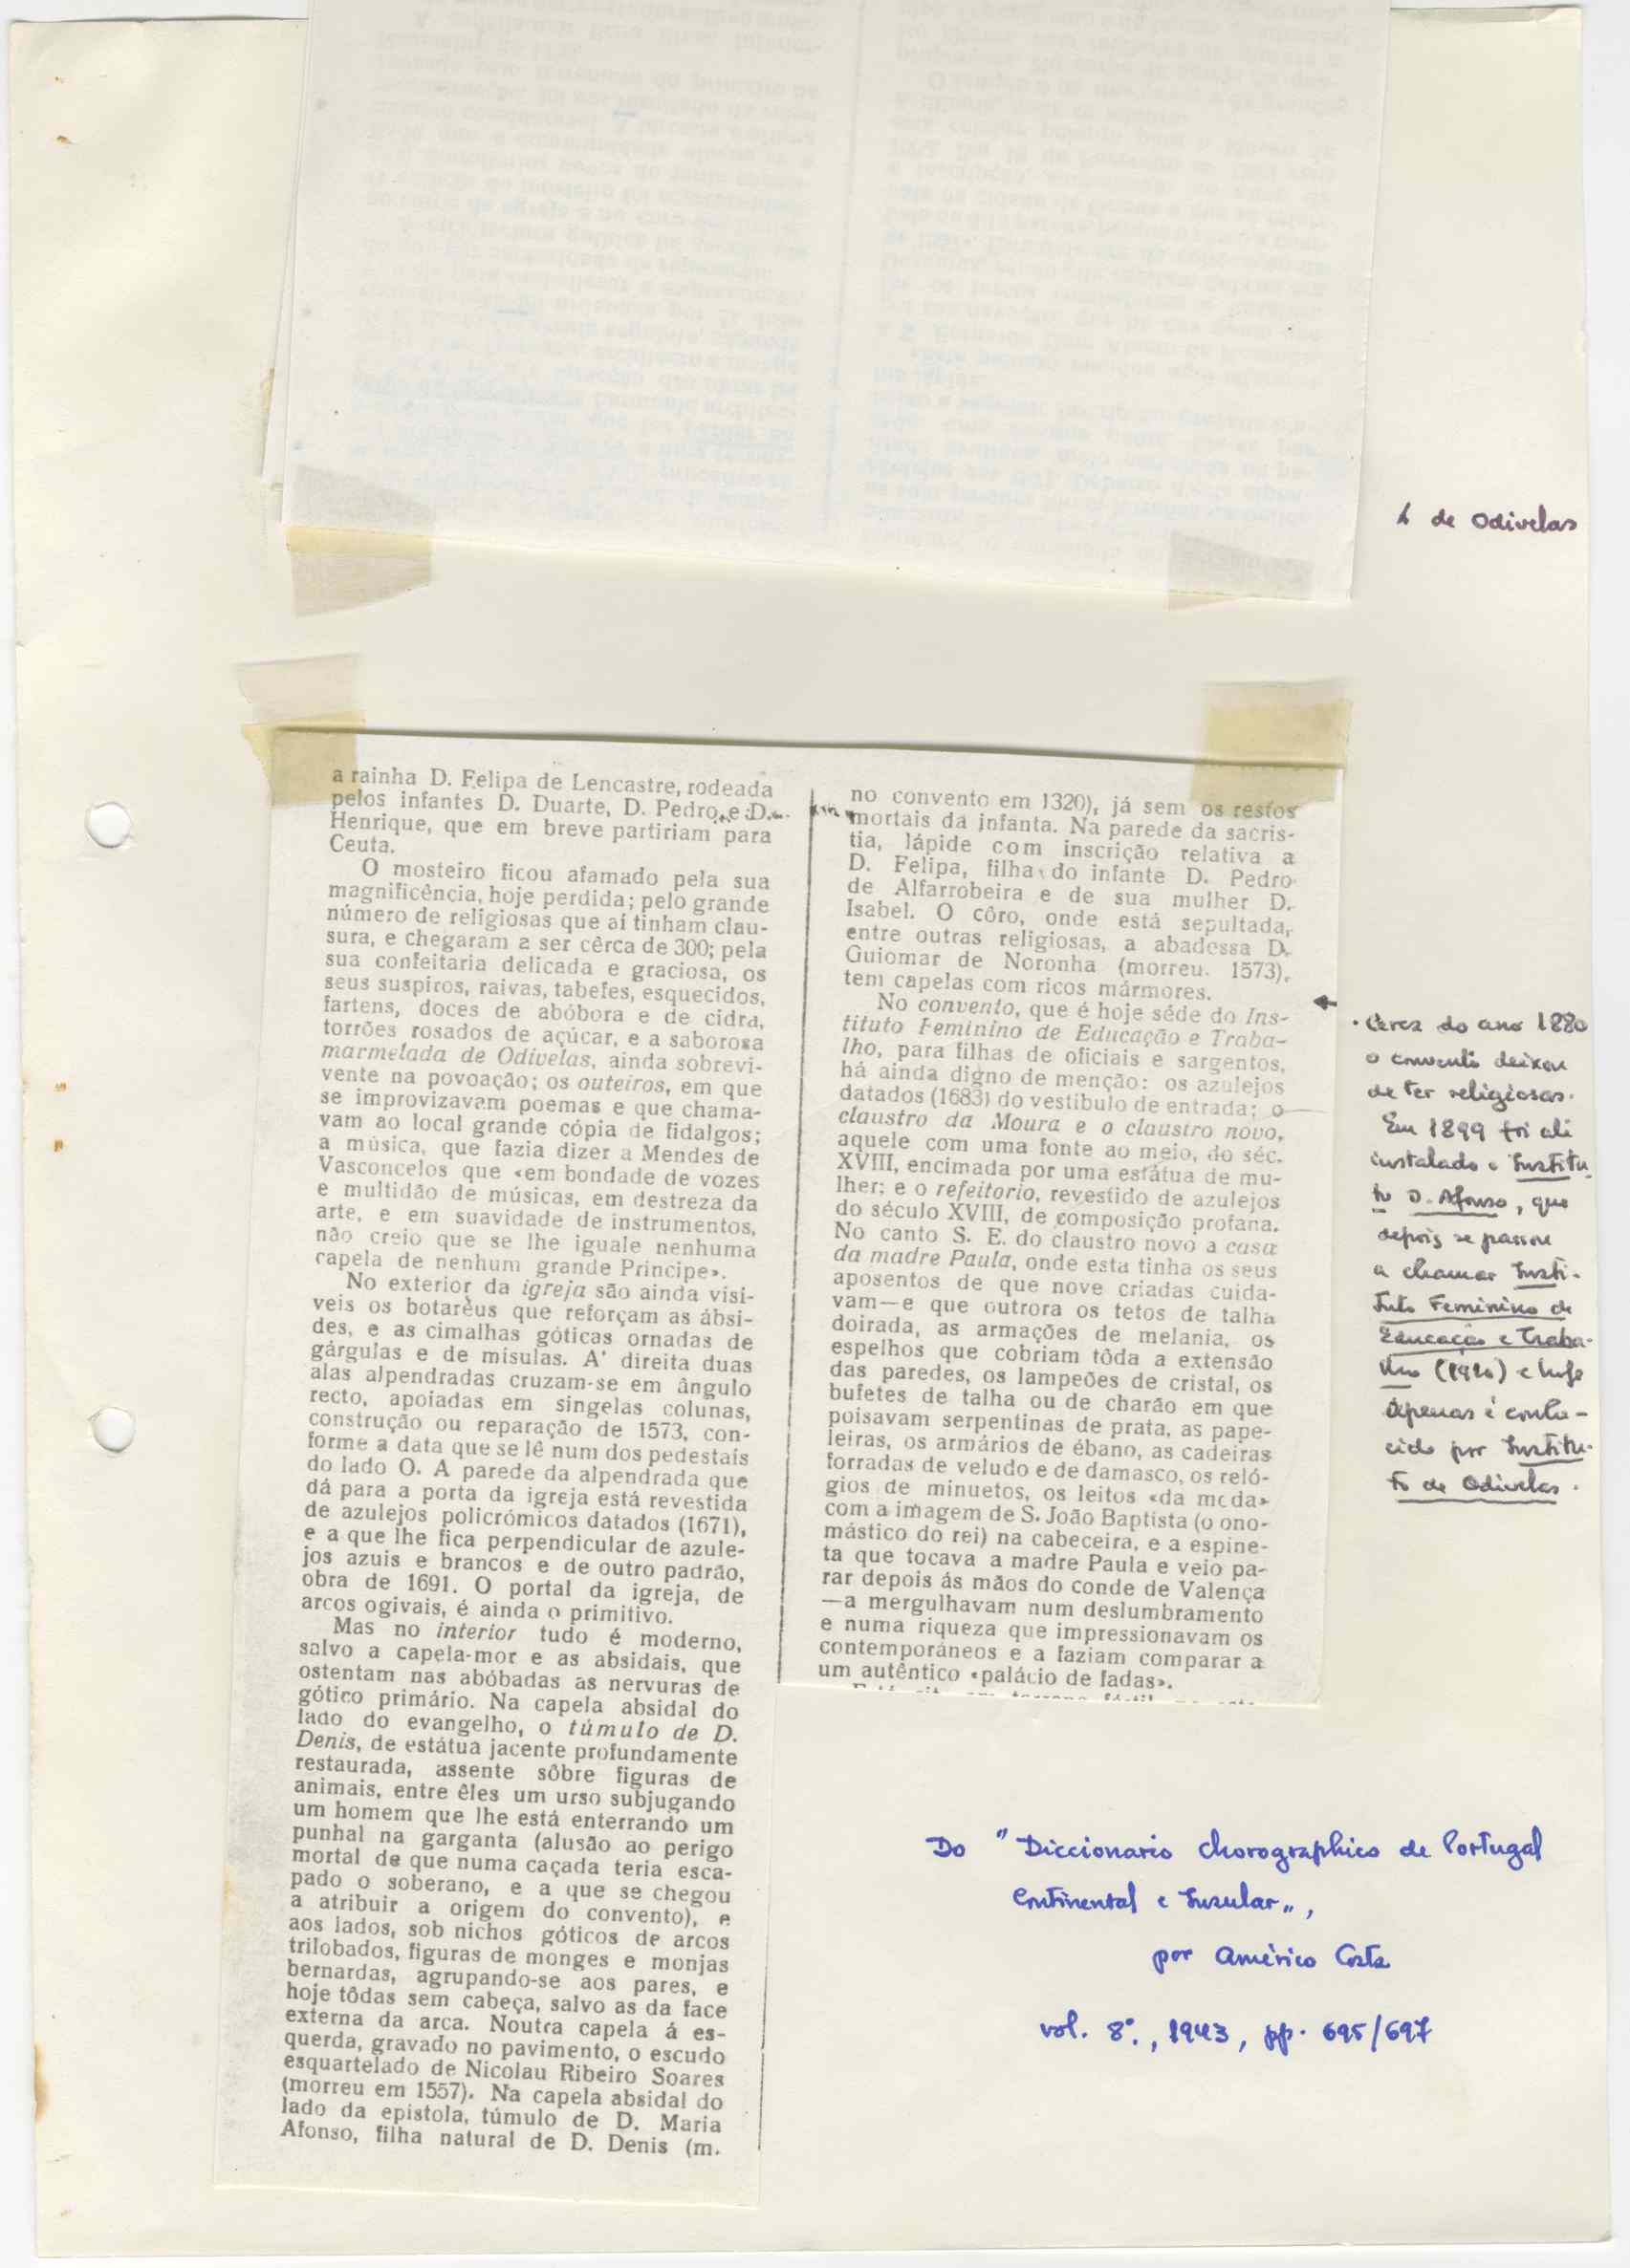 de Odivelas
a rainha D. Felipa de Lencastre, rodeada
pelos infantes D. Duarte, D. Pedro, e D.
Henrique, que em breve partiriam para
Ceuta.
O mosteiro ficou afamado pela sua
magnificência, hoje perdida; pelo grande
número de religiosas que aí tinham clau-
sura, e chegaram a ser cêrca de 300; pela
sua confeitaria delicada e graciosa, os
seus suspiros, raivas, tabefes, esquecidos,
fartens, doces de abóbora e de cidra,
torrões rosados de açúcar, e a saborosa
marmelada de Odivelas, ainda sobrevi-
vente na povoação; os outeiros, em que
se improvizavam poemas e que chama-
vam ao local grande cópia de fidalgos;
a música, que fazia dizer a Mendes de
Vasconcelos que «em bondade de vozes
e multidão de músicas, em destreza da
arte, e em suavidade de instrumentos,
não creio que se lhe iguale nenhuma
capela de nenhum grande Principe».
No exterior da igreja são ainda visi-
veis os botarèus que reforçam as ábsi-
des, e as cimalhas góticas ornadas de
gárgulas e de mísulas. A' direita duas
alas alpendradas cruzam-se em ângulo
recto, apoiadas em singelas colunas,
construção ou reparação de 1573, con-
forme a data que se lê num dos pedestais
do lado O. A parede da alpendrada que
dá para a porta da igreja está revestida
de azulejos policrómicos datados (1671),
e a que lhe fica perpendicular de azule-
jos azuis e brancos e de outro padrão,
obra de 1691. O portal da igreja, de
arcos ogivais, é ainda o primitivo.
Mas no interior tudo é moderno,
salvo a capela-mor e as absidais, que
ostentam nas abóbadas as nervuras de
gótico primário. Na capela absidal do
lado do evangelho, o túmulo de D.
Denis, de estátua jacente profundamente
restaurada, assente sôbre figuras de
animais, entre êles um urso subjugando
um homem que lhe está enterrando um
punhal na garganta (alusão ao perigo
mortal de que numa caçada teria esca-
pado o soberano, e a que se chegou
a atribuir a origem do convento), e
aos lados, sob nichos góticos de arcos
trilobados, figuras de monges e monjas
bernardas, agrupando-se aos pares, e
hoje tôdas sem cabeça, salvo as da face
externa da arca. Noutra capela á es-
querda, gravado no pavimento, o escudo
esquartelado de Nicolau Ribeiro Soares
(morreu em 1557). Na capela absidal do
lado da epistola, túmulo de D. Maria
Afonso, filha natural de D. Denis (m.
no convento em 1320), já sem os restos
mortais da infanta. Na parede da sacris-
tia, lápide com inscrição relativa a
D. Felipa, filha do infante D. Pedro
de Alfarrobeira e de sua mulher D.
Isabel. O côro, onde está sepultada,
entre outras religiosas, a abadessa D.
Guiomar de Noronha (morreu. 1573),
tem capelas com ricos mármores.
No convento, que é hoje séde do Ins-
tituto Feminino de Educação e Traba-
lho, para filhas de oficiais e sargentos,
há ainda digno de menção: os azulejos
datados (1683) do vestíbulo de entrada; o
claustro da Moura e o claustro novo,
aquele com uma fonte ao meio, do séc.
XVIII, encimada por uma estátua de mu-
lher; e o refeitorio, revestido de azulejos
do século XVIII, de composição profana.
No canto S. E. do claustro novo a casa
da madre Paula, onde esta tinha os seus
aposentos de que nove criadas cuida-
vam—e que outrora os tetos de talha
doirada, as armações de melania, os
espelhos que cobriam tôda a extensão
das paredes, os lampeões de cristal, os
bufetes de talha ou de charão em que
poisavam serpentinas de prata, as pape-
leiras, os armários de ébano, as cadeiras
forradas de veludo e de damasco, os reló-
gios de minuetos, os leitos «da moda»
com a imagem de S. João Baptista (o ono-
mástico do rei) na cabeceira, e a espine-
ta que tocava a madre Paula e veio pa-
rar depois ás mãos do conde de Valença
—a mergulhavam num deslumbramento
e numa riqueza que impressionavam os
contemporáneos e a faziam comparar a
um autêntico «palácio de fadas».
. Cerca do ano 1880
o convento deixou
de ter religiosas.
Em 1899 foi ali
instalado o Institu-
to D. Afonso, que
depois se passou
a chamar Insti-
tuto Feminino de
Educação e Traba-
lho (1910) e hoje
apenas é conhe-
cido por Institu-
to de Odivelas.
Do "Diccionario Chorographico de Portugal
Continental e Insular",
por Américo Costa
vol. 8º., 1943, pp. 695/697